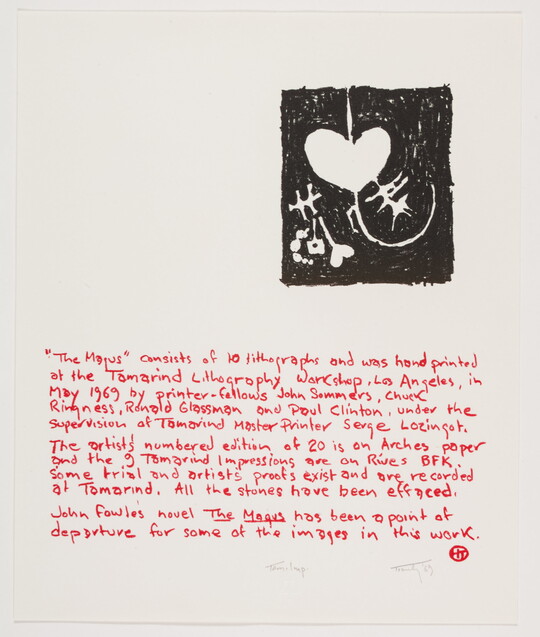 "The Magus" consists of 10 lithographs and was hand printed
at the Tamarind Lithography Workshop, Los Angeles, in
May 1969 by printer-fellows John Sommers, Chuck
Ringness, Ronald Glassman and Paul Clinton, under the
supervision of Tamarind Master Printer Serge Lozingot.
The artist's numbered edition of 20 is on Arches paper
and the 9 Tamarind Impressions are on Rives BFK.
Some trial and artist's proofs exist and are recorded
at Tamarind. All the stones have been effaced.
John Fowles novel The Magus has been a point of
departure for some of the images in this work.
HT